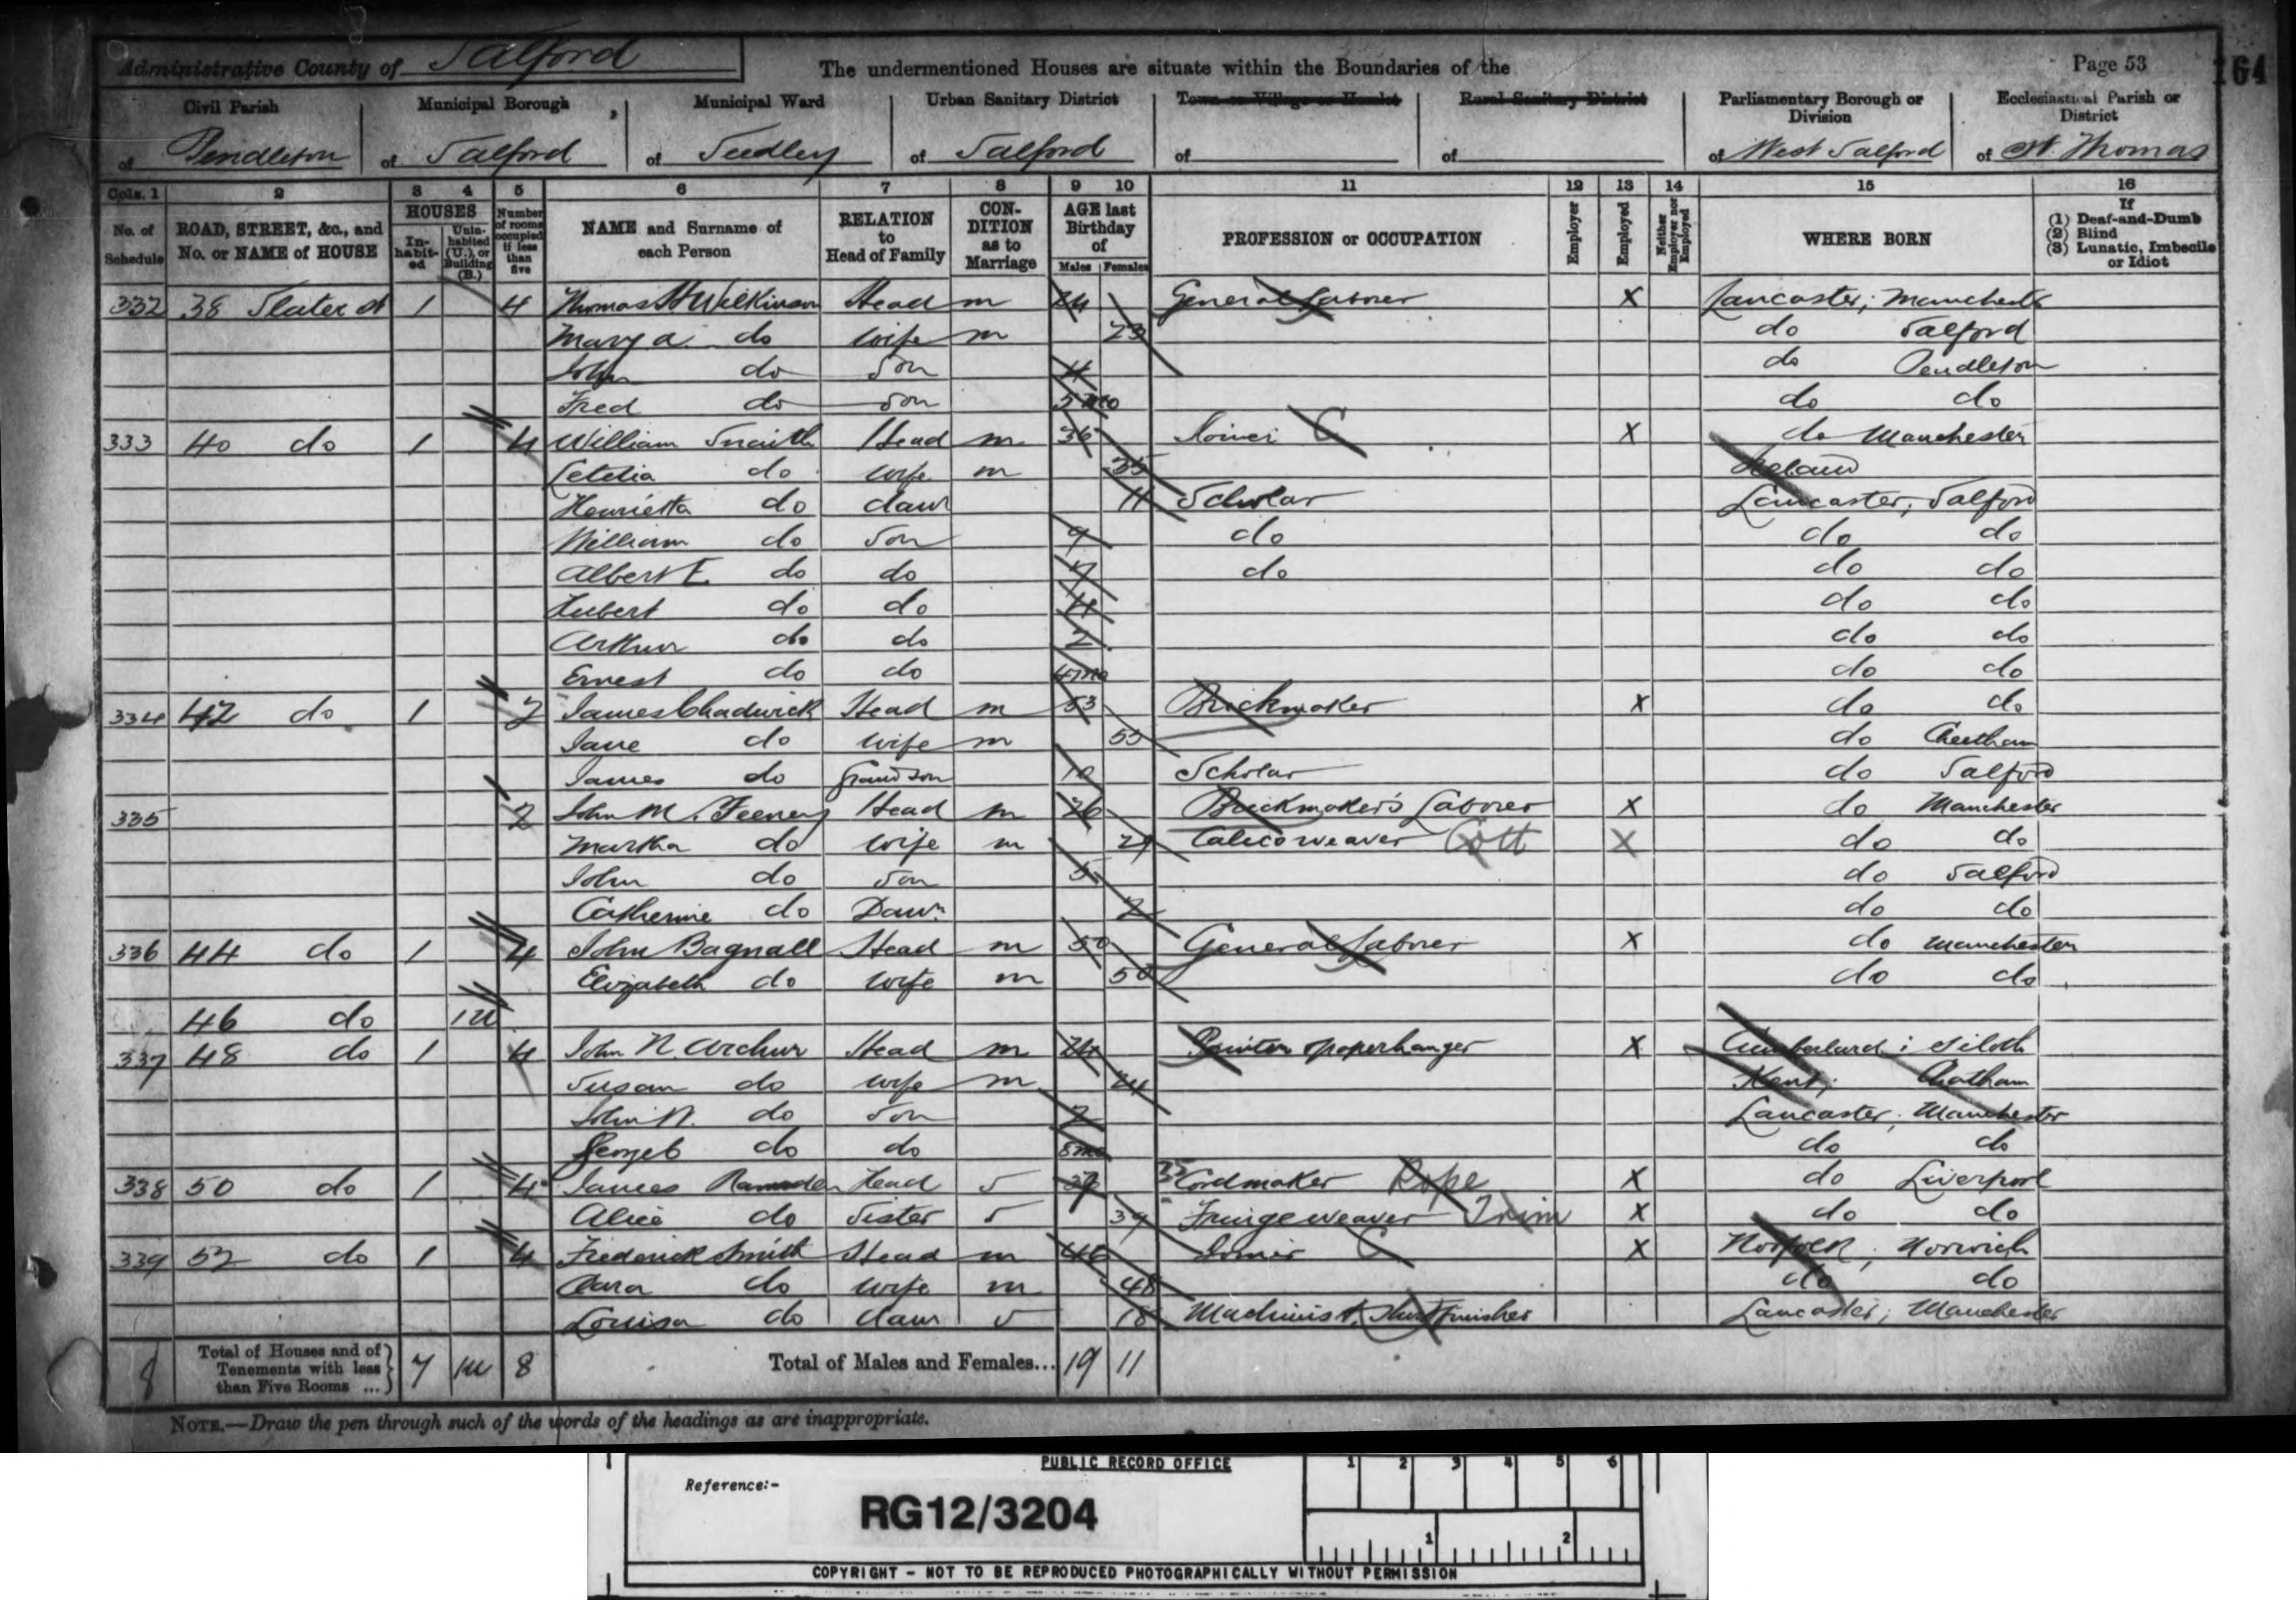 Administrative County of Salford The undermentioned Houses are situate within the Boundaries of the Page 53 164
Civil Parish Municipal Borough Municipal Ward Urban Sanitary District Town or Village or Hamlet Rural Sanitary District Parliamentary Borough or Division Ecclesiastical Parish or District
of Pendleton of Salford of Seedley of Salford of of of West Salford of St. Thomas
Cols. 1 2 3 4 5 6 7 8 9 10 11 12 13 14 15 16
No. of Schedule ROAD, STREET, &c., and No. or NAME of HOUSE HOUSES In-habit-ed Unin-habited (U.), or Building (B.) Number of rooms occupied if less than five NAME and Surname of each Person RELATION to Head of Family CON-DITION as to Marriage AGE last Birthday of Males Females PROFESSION or OCCUPATION Employer Employed Neither Employer nor Employed WHERE BORN If (1) Deaf-and-Dumb (2) Blind (3) Lunatic, Imbecile or Idiot
332 38 Slater St 1 4 Thomas H Wilkinson Head m 24 General Laborer X Lancaster; Manchester
Mary A do wife m 23 do Salford
John do Son 4 do Pendleton
Fred do son 5 mo do do
333 40 do 1 4 William Snaith Head m 36 Joiner C X do Manchester
Letetia do wife m 35 Ireland
Henrietta do daur 11 Scholar Lancaster; Salford
William do Son 9 do do do
Albert E do do 7 do do do
Hubert do do 4 do do
Arthur do do 2 do do
Ernest do do 4mo do do
334 42 do 1 2 James Chadwick Head m 53 Brickmaker X do do
Jane do wife m 55 do Cheetham
James do Grandson 10 Scholar do Salford
335 2 John M. Feeney Head m 26 Brickmaker's Laborer X do Manchester
Martha do wife m 29 Calico weaver Cott X do do
John do Son 5 do Salford
Catherine do Daur 2 do do
336 44 do 1 4 John Bagnall Head m 50 General Laborer X do Manchester
Elizabeth do wife m 50 do do
46 do 1U
337 48 do 1 4 John N. Archur Head m 24 Painter & paperhanger X Cumberland; Siloth
Susan do wife m 24 Kent; Chatham
John N. do Son 2 Lancaster; Manchester
George do do 8mo do do
338 50 do 1 4 James Ramsden Head S 37 Cordmaker Rope X do Liverpool
Alice do Sister S 39 Fringe weaver Trim X do do
339 52 do 1 4 Frederick Smith Head m 46 Joiner C X Norfolk; Norwich
Clara do wife m 48 do do
Louisa do daur S 18 Machinist, Shirt finisher Lancaster; Manchester
8 Total of Houses and of Tenements with less than Five Rooms ... 7 1U 8 Total of Males and Females... 19 11
NOTE.—Draw the pen through such of the words of the headings as are inappropriate.
PUBLIC RECORD OFFICE 1 2 3 4 5 6
Reference:-
RG12/3204
1 2
COPYRIGHT - NOT TO BE REPRODUCED PHOTOGRAPHICALLY WITHOUT PERMISSION